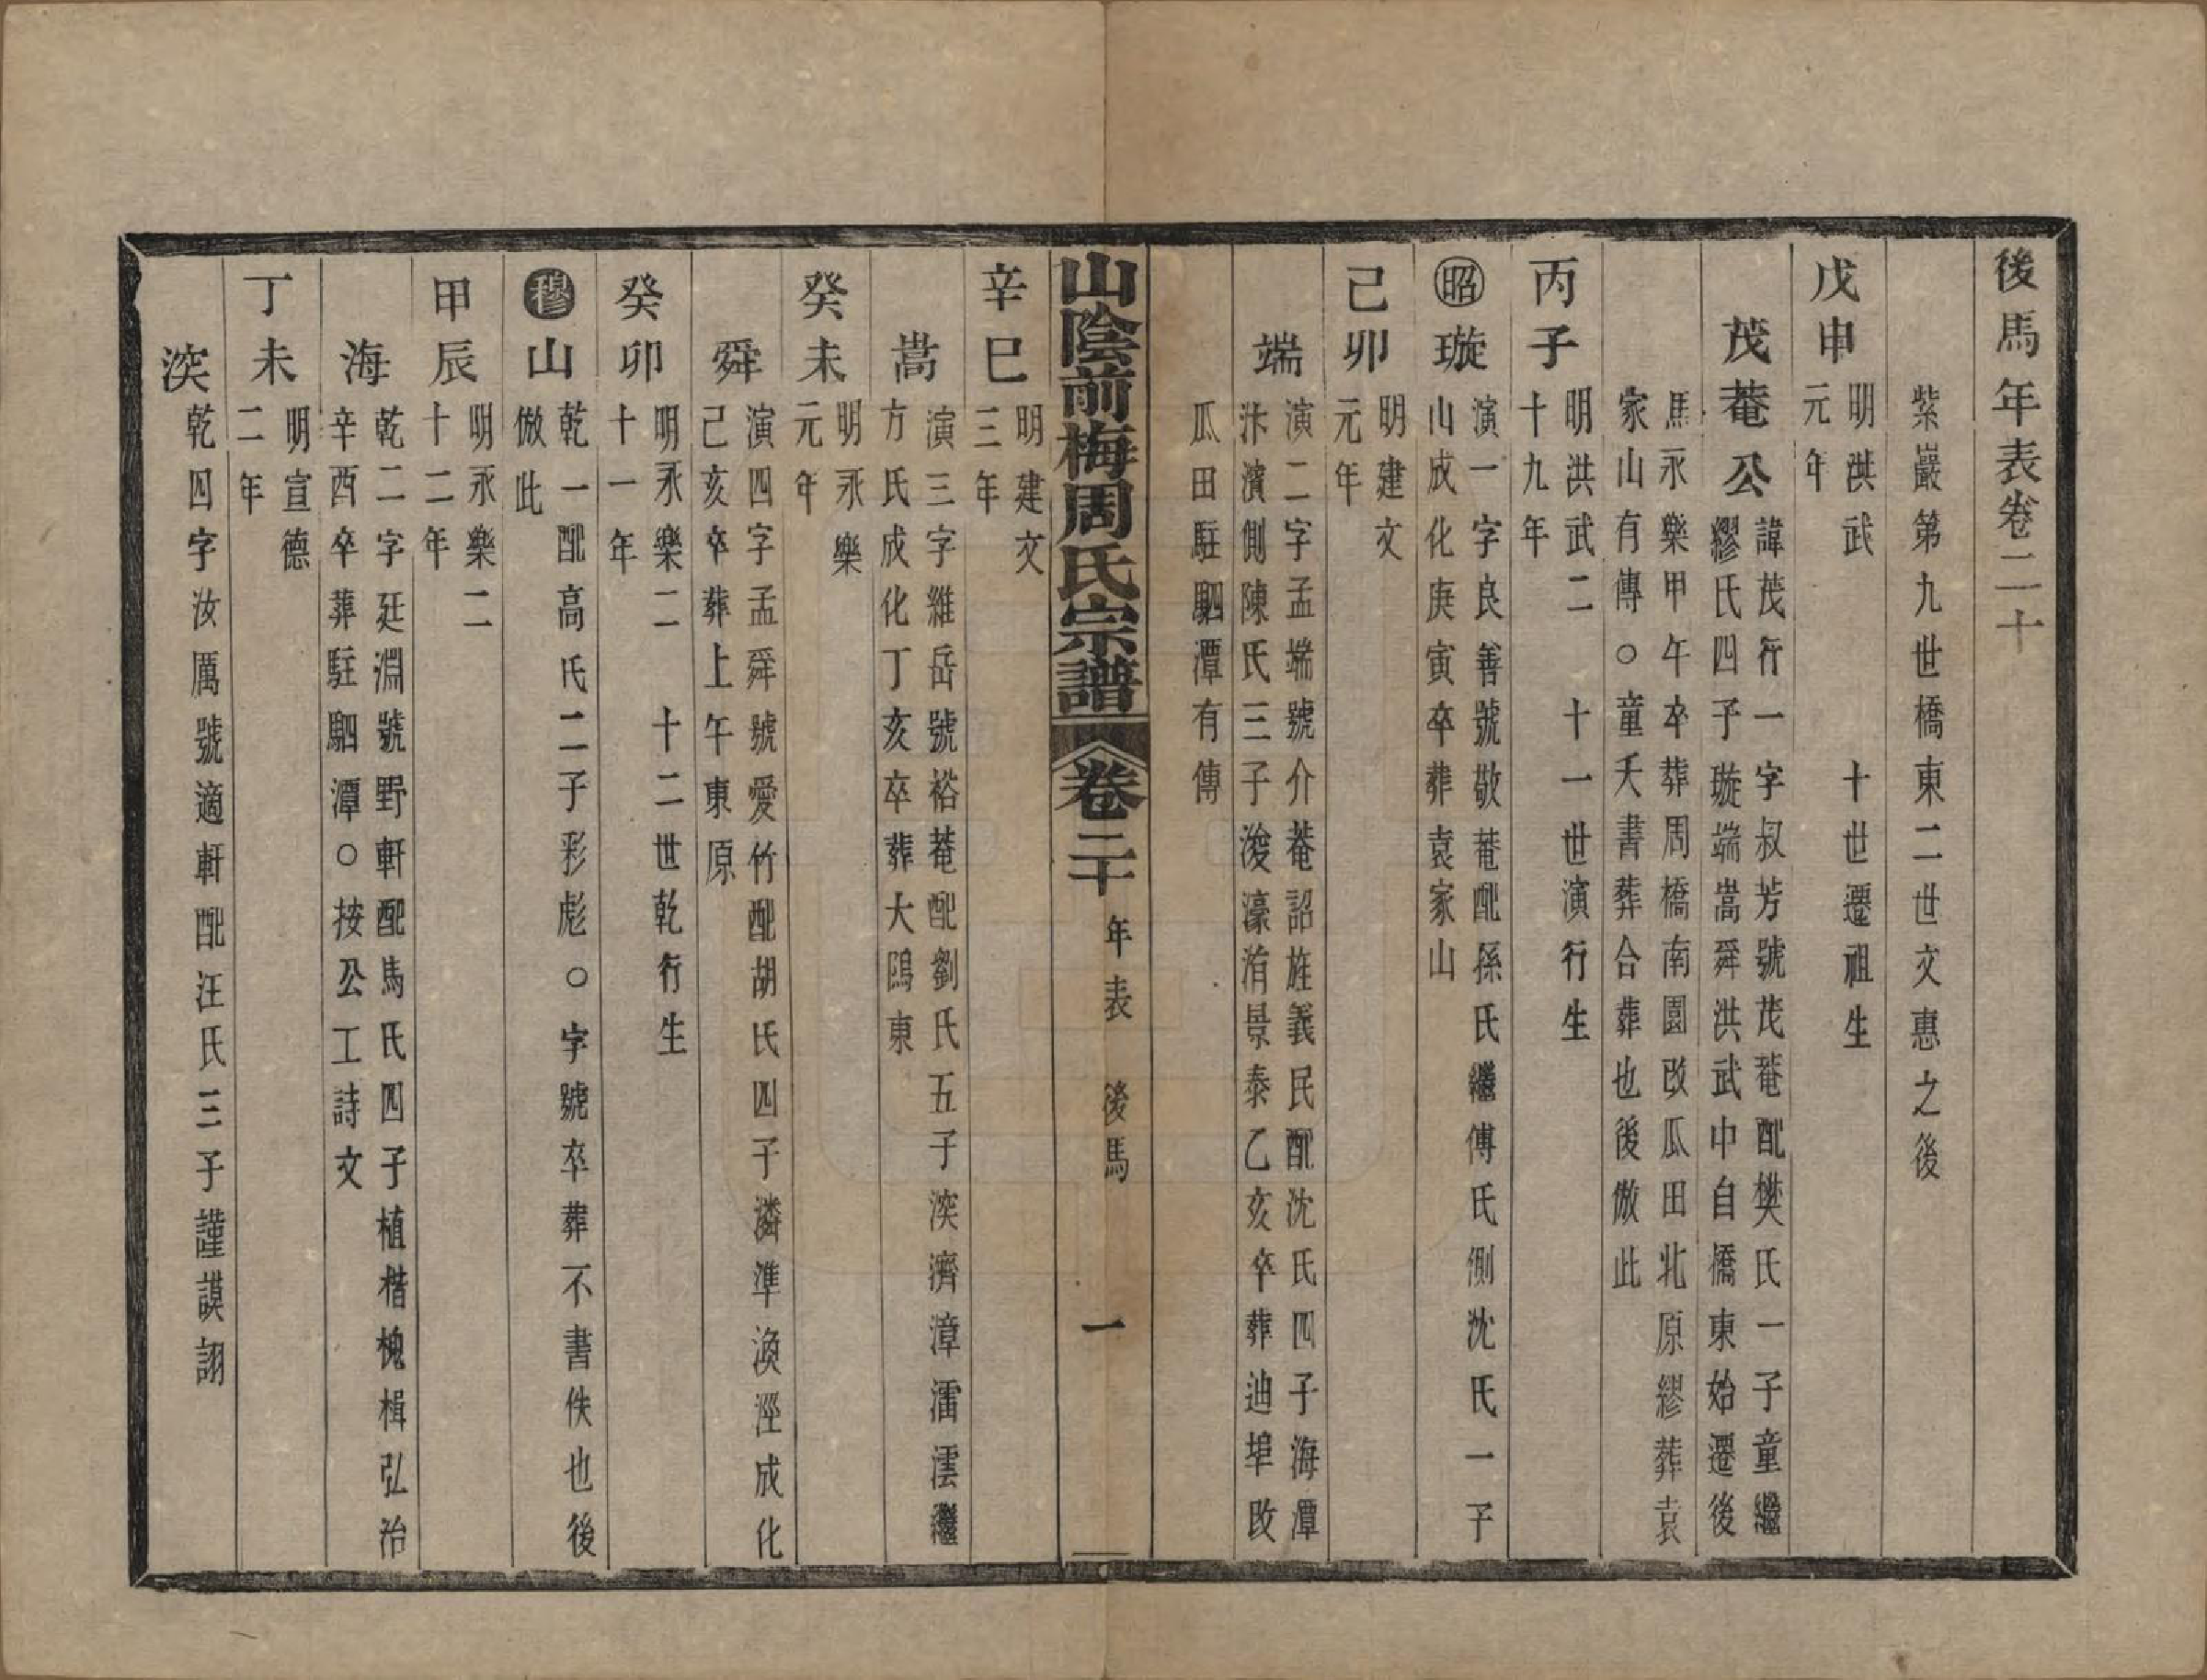 後馬年表卷二十
紫巖第九世橋東二世文惠之後
戊申
明洪武　十世遷祖生
元年
茂菴公
諱茂行一字叔芳號茂菴配樊氏一子童繼
繆氏四子璇端嵩舜洪武中自橋東始遷後
馬永樂甲午卒葬周橋南園改瓜田北原繆葬袁
家山有傳○童夭書葬合葬也後倣此
丙子
明洪武二　十一世演行生
十九年
昭璇
演一字良善號敬菴配孫氏繼傅氏側沈氏一子
山成化庚寅卒葬袁家山
己卯
明建文
元年
端
演二字孟端號介菴詔旌義民配沈氏四子海潭
汴濱側陳氏三子浚濠淯景泰乙亥卒葬迪埠改
瓜田駐駟潭有傳
山陰前梅周氏宗譜
卷二十
年表　後馬
一
辛巳
明建文
三年
嵩
演三字維岳號裕菴配劉氏五子湥濟漳濡澐繼
方氏成化丁亥卒葬大鵶東
癸未
明永樂
元年
舜
演四字孟舜號愛竹配胡氏四子潾準渙溼成化
己亥卒葬上午東原
癸卯
明永樂二　十二世乾行生
十一年
穆山
乾一配高氏二子彩彪○字號卒葬不書佚也後
倣此
甲辰
明永樂二
十二年
海
乾二字廷淵號野軒配馬氏四子植楷槐楫弘治
辛酉卒葬駐駟潭○按公工詩文
丁未
明宣德
二年
湥
乾四字汝厲號適軒配汪氏三子謹謨詡